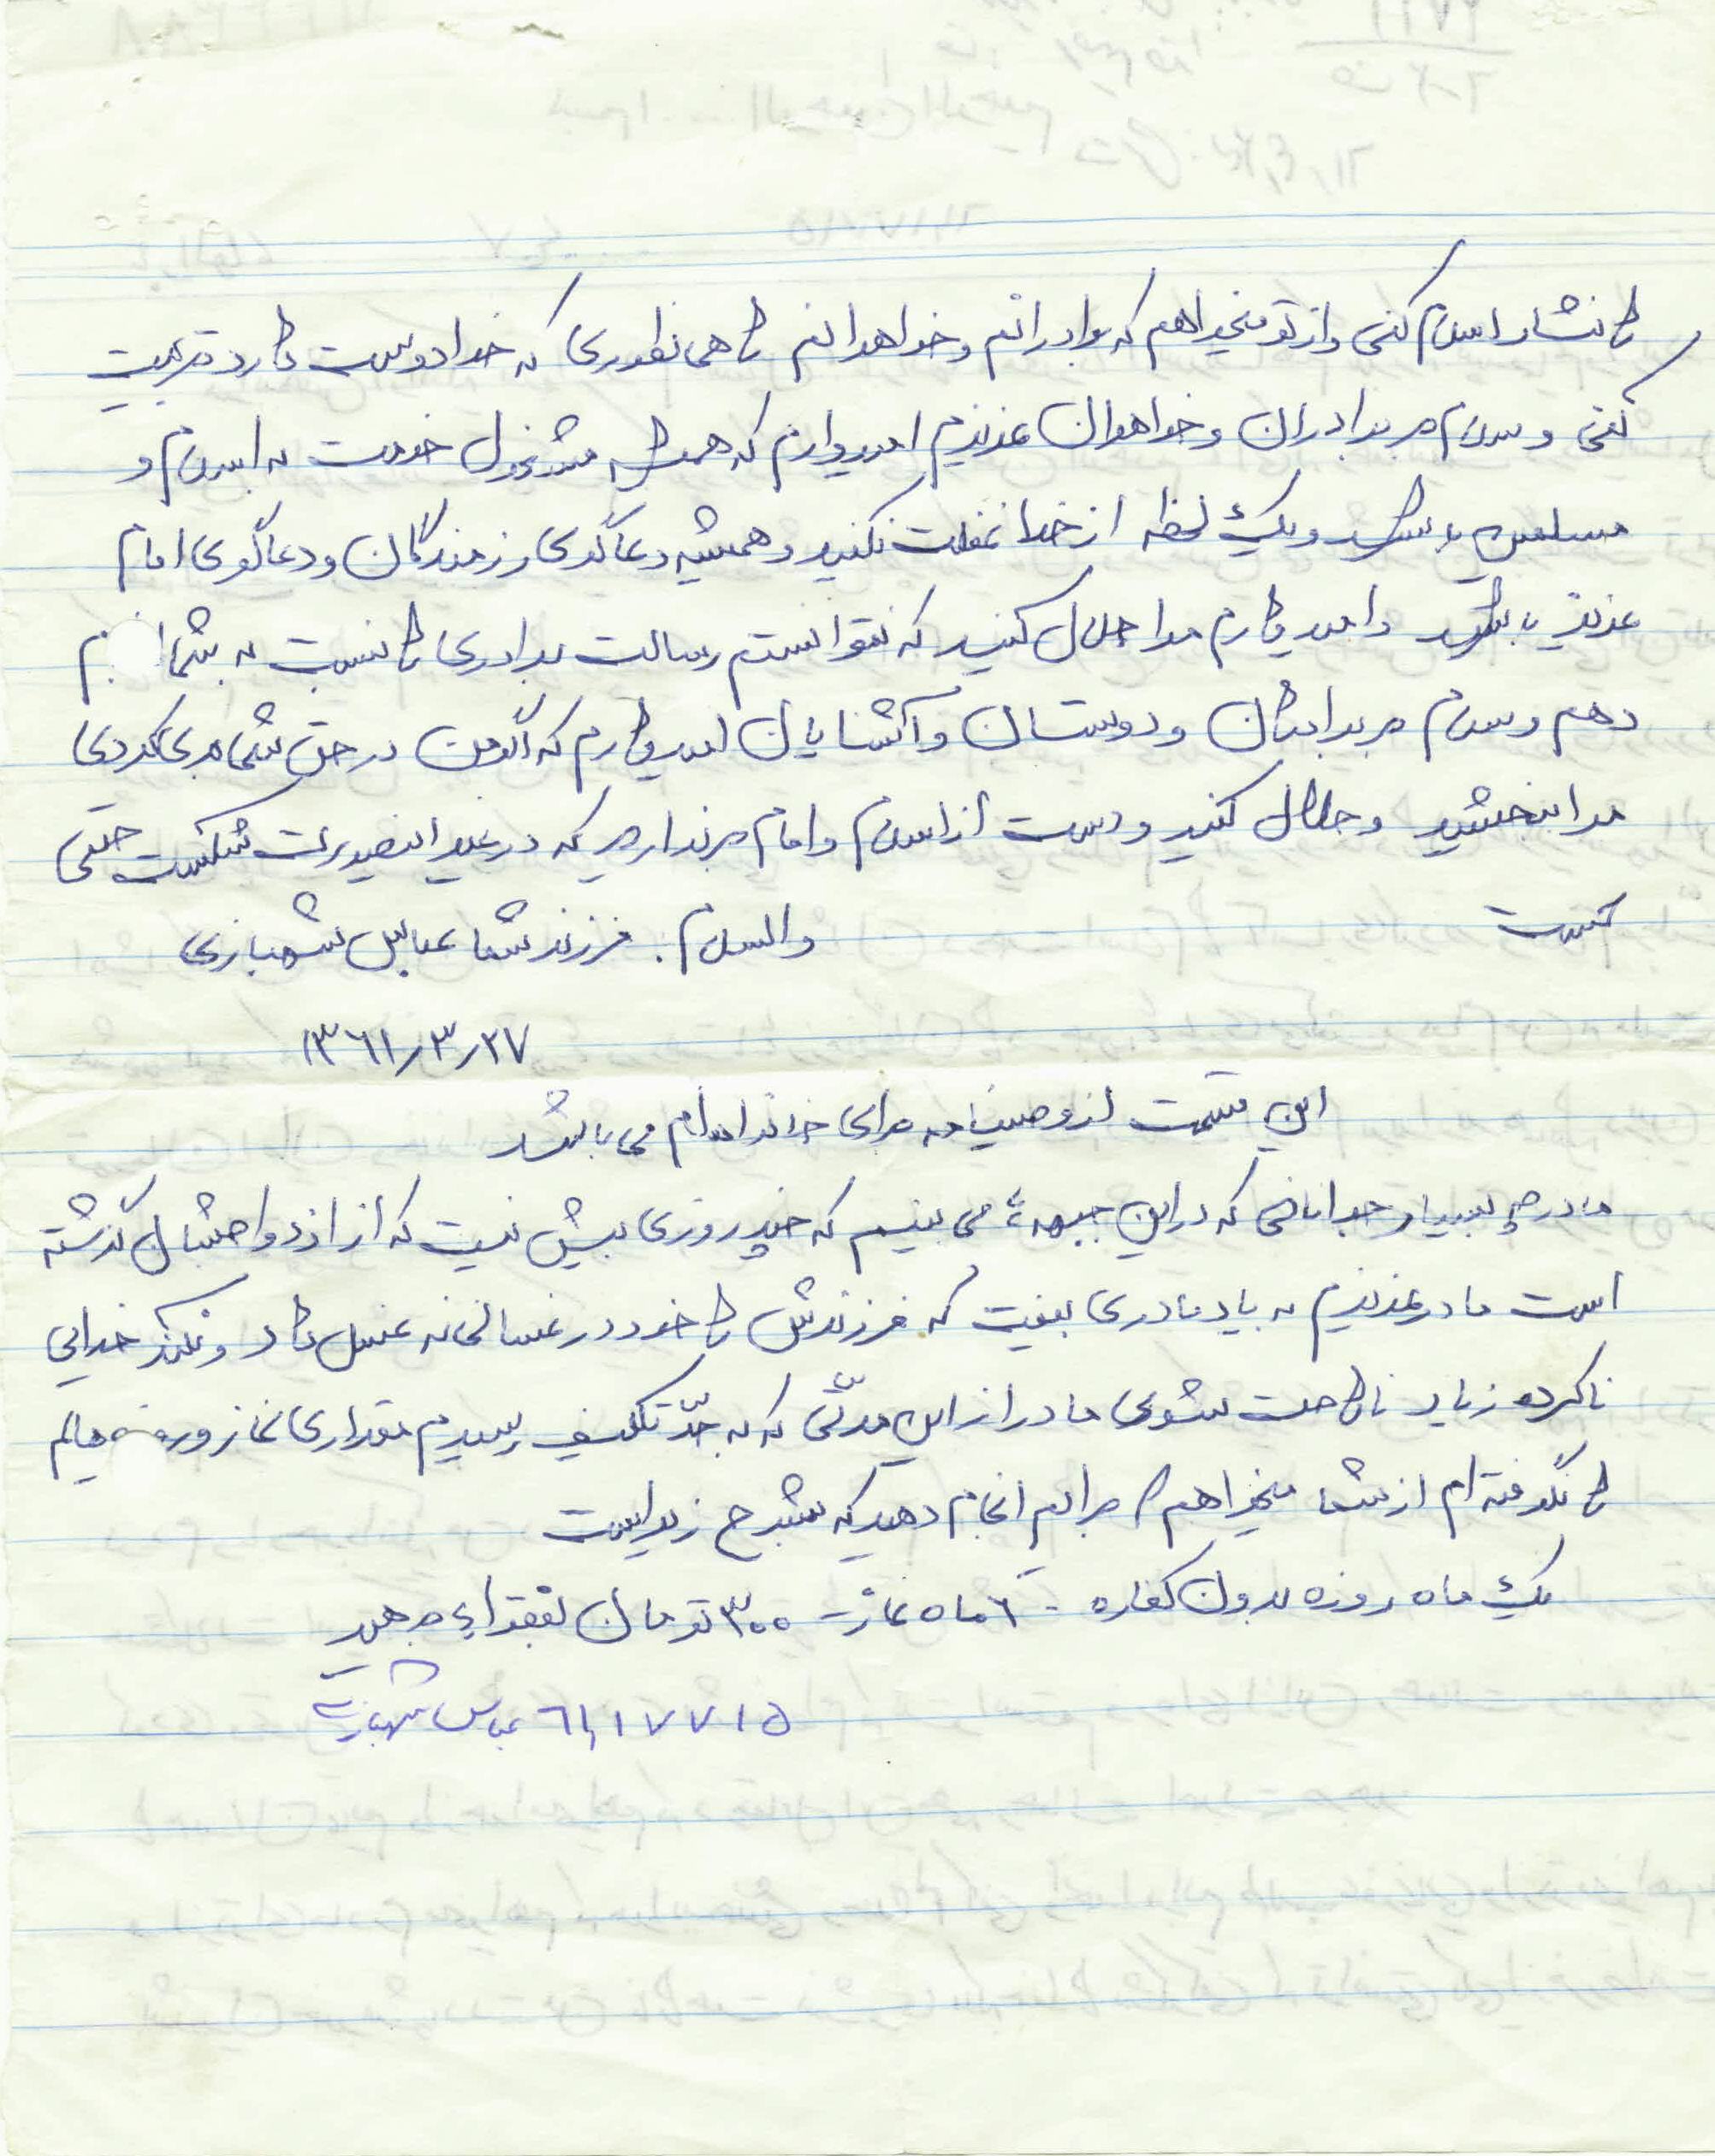 را نثار اسلام کنی و از تو میخواهم که برادرانم و خواهرانم را همی نطوری که خدا دوست دارد تربیت
کنی و سلام بر برادران و خواهران عزیزم امیدوارم که همیشه مشغول خدمت به اسلام و
مسلمین باشید و یک لحظه از خدا غفلت نکنید و همیشه دعاگوی رزمندگان و دعاگوی امام
عزیز باشید و امید وارم مرا حلال کنید که نتوانستم رسالت برادری را نسبت به شما
دهم و سلام بر برادران و دوستان و آشنایان امیدوارم که اگر من در حق شما بدی کردی
مرا ببخشید و حلال کنید و دست از اسلام و امام برندارید که در غیر اینصورت شکست حتمی
است
والسلام. فرزند شما عباس شهبازی
۱۳۶۱/۳/۲۷
این قسمت از وصیتنامه برای خانواده ام می باشد
مادرم چه بسیار جوانانی که در این جبهه ها می بینیم که چند روزی بیش نیست که از ازدواجشان گذشته
است مادر عزیزم به یاد مادری بیفت که فرزندش را خود در غسالخانه غسل داد و نکند خدایی
ناکرده زیاد ناراحت بشوی مادر از این مدتی که به حدّ تکلیف رسیدم مقداری نماز و روزه هایم
را نگرفته ام از شما میخواهم برایم انجام دهید که بشرح زیر است
یک ماه روزه بدون کفاره - ۶ ماه نماز - ۳۰۰ تومان بفقراء بدهید
عباس شهبازی